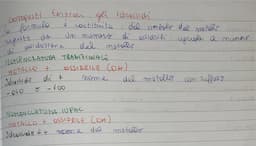 Composti ternari gli idrossidi
la formula è costituita dal simbolo del metallo
seguito da un numero di ossidrili uguale al numero
di ossidazione del metallo
NOMENCLATURA TRADIZIONALE
METALLO + OSSIDRILE (OH)
Idrossido di + nome del metallo con suffisso
-oso o -ico
NOMENCLATURA IUPAC
METALLO + OSSIDRILE (OH)
Idrossido di + nome del metallo